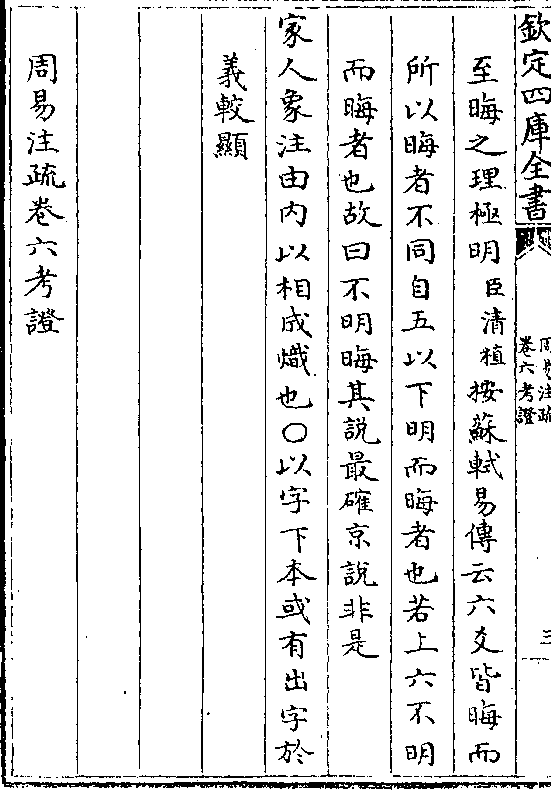 欽定四庫全書
周易注疏
卷六考證
三
至晦之理極明臣清植按蘇軾易傳云六爻皆晦而
所以晦者不同自五以下明而晦者也若上六不明
而晦者也故曰不明晦其說最確京說非是
家人象注由内以相成熾也○以字下本或有出字於
義較顯
周易注疏卷六考證